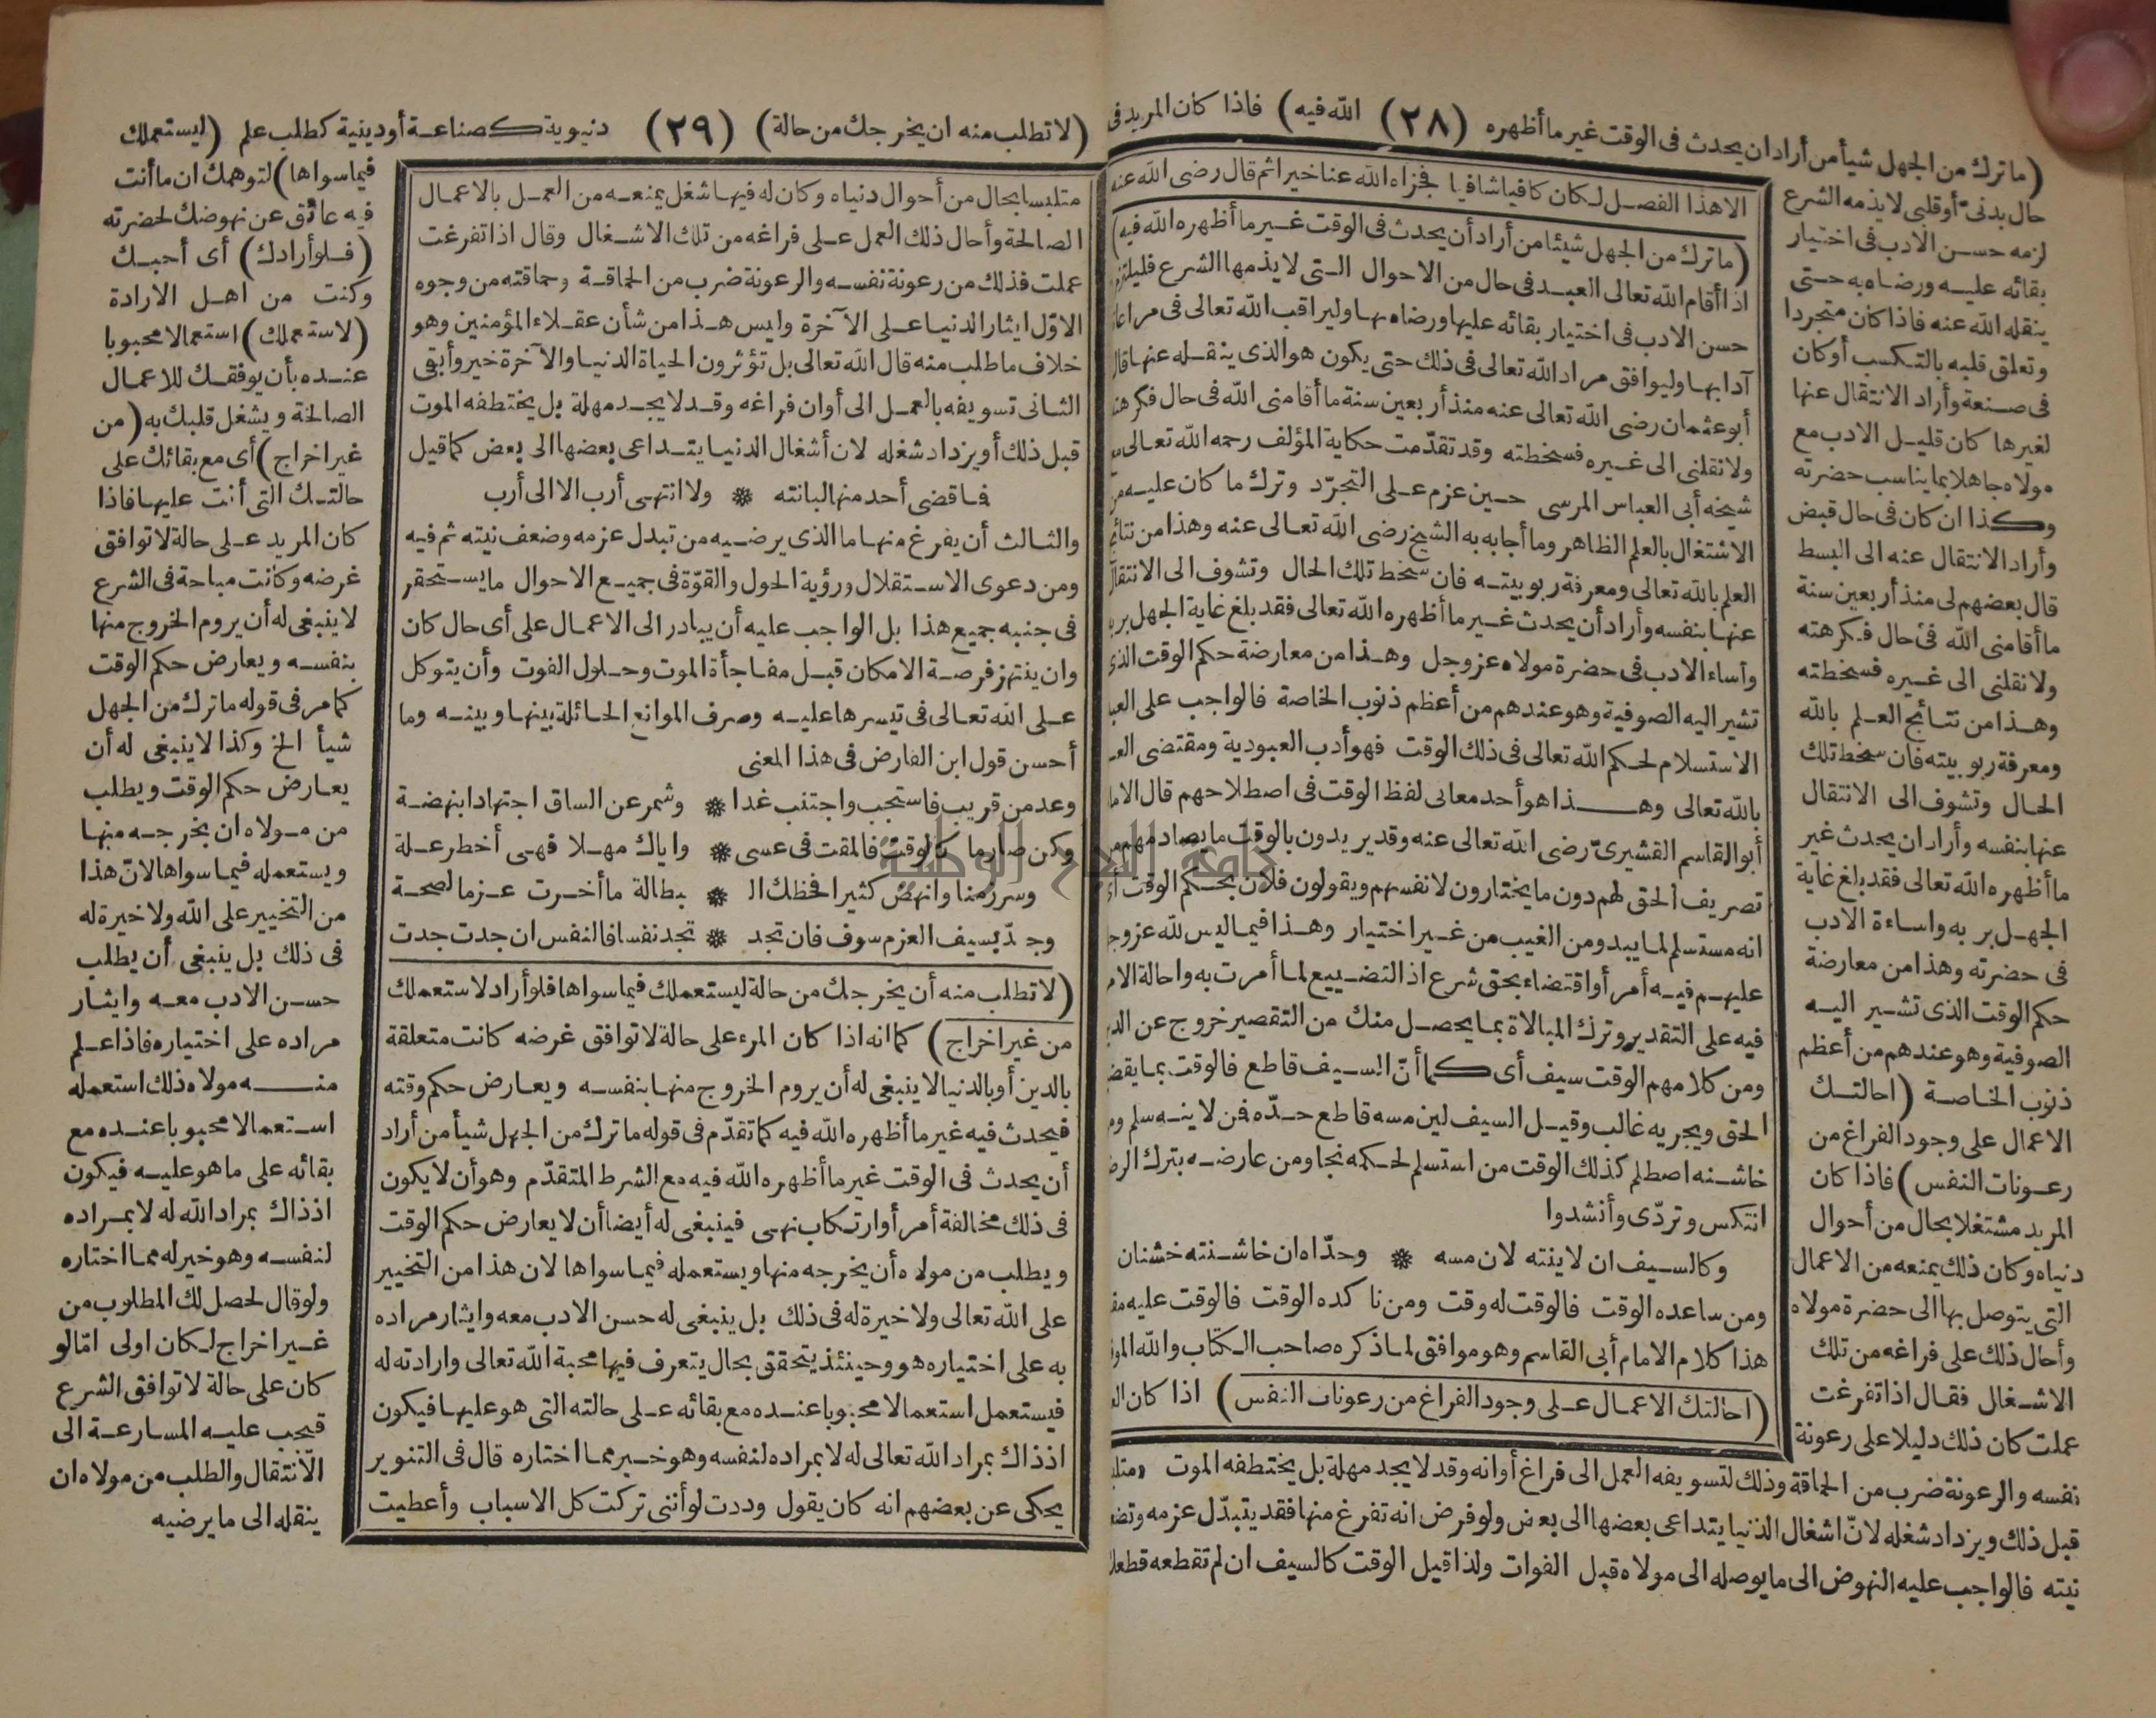 (ما ترك من الجهل شيأ من أراد ان يحدث فى الوقت غير ما أظهره (٢٨) الله فيه) فاذا كان المريد فى
حال بدنى أوقلبى لا يذمه الشرع
لزمه حسن الادب فى اختيار
بقائه عليه ورضاه به حتى
ينقله الله عنه فاذا كان متجردا
وتعلق قلبه بالتكسب أوكان
فى صنعة وأراد الانتقال عنها
لغيرها كان قليل الادب مع
مولاه جاهلا بما يناسب حضرته
وكذا ان كان فى حال قبض
وأراد الانتقال عنه الى البسط
قال بعضهم لى منذ أربعين سنة
ما أقامنى الله فى حال فكرهته
ولا نقلنى الى غيره فسخطته
وهذا من نتائج العلم بالله
ومعرفة ربوبيته فان سخط تلك
الحال وتشوف الى الانتقال
عنها بنفسه وأراد ان يحدث غير
ما أظهره الله تعالى فقد بلغ غاية
الجهل بربه واساءة الادب
فى حضرته وهذا من معارضة
حكم الوقت الذى تشير اليه
الصوفية وهو عندهم من أعظم
ذنوب الخاصة (احالتك
الاعمال على وجود الفراغ من
رعونات النفس) فاذا كان
المريد مشتغلا بحال من أحوال
دنياه وكان ذلك يمنعه من الاعمال
التى يتوصل بها الى حضرة مولاه
وأحال ذلك على فراغه من تلك
الاشغال فقال اذا تفرغت
عملت كان ذلك دليلا على رعونة
نفسه والرعونة ضرب من الحماقة وذلك لتسويفه العمل الى فراغ أوانه وقد لا يجد مهلة بل يختطفه الموت
قبل ذلك ويزداد شغله لانّ اشغال الدنيا يتداعى بعضها الى بعض ولو فرض انه تفرغ منها فقد يتبدّل عزمه
نيته فالواجب عليه النهوض الى ما يوصله الى مولاه قبل الفوات ولذا قيل الوقت كالسيف ان لم تقطعه
الا هذا الفصل لكان كافيا شافيا فجزاه الله عنا خيرا ثم قال رضى الله عنه
(ما ترك من الجهل شيئا من أراد أن يحدث فى الوقت غير ما أظهره الله فيه)
اذا أقام الله تعالى العبد فى حال من الاحوال التى لا يذمها الشرع فليلتزم
حسن الادب فى اختيار بقائه عليها ورضاه بها وليراقب الله تعالى فى
آدابها وليوافق مراد الله تعالى فى ذلك حتى يكون هو الذى ينقله عنها قال
أبو عثمان رضى الله تعالى عنه منذ أربعين سنة ما أقامنى الله فى حال
ولا نقلنى الى غيره فسخطته وقد تقدّمت حكاية المؤلف رحمه الله تعالى
شيخه أبى العباس المرسى حين عزم على التجرّد وترك ما كان عليه
الاشتغال بالعلم الظاهر وما أجابه به الشيخ رضى الله تعالى عنه وهذا من
العلم بالله تعالى ومعرفة ربوبيته فان سخط تلك الحال وتشوف الى
عنها بنفسه وأراد أن يحدث غير ما أظهره الله تعالى فقد بلغ غاية الجهل
وأساء الادب فى حضرة مولاه عز وجل وهذا من معارضة حكم الوقت الذى
تشير اليه الصوفية وهو عندهم من أعظم ذنوب الخاصة فالواجب على
الاستسلام لحكم الله تعالى فى ذلك الوقت فهو أدب العبودية ومقتضى
بالله تعالى وهذا هو أحد معانى لفظ الوقت فى اصطلاحهم قال
أبو القاسم القشيرىّ رضى الله تعالى عنه وقد يريدون بالوقت ما يصادمهم
تصريف الحق لهم دون ما يختارون لانفسهم ويقولون فلان بحكم الوقت
انه مستسلم لما يبدو من الغيب من غير اختيار وهذا فيما ليس لله
عليهم فيه أمر أو اقتضاء بحق شرع اذ التضييع لما أمرت به واحالة
فيه على التقدير وترك المبالاة بما يحصل منك من التقصير خروج عن
ومن كلامهم الوقت سيف أى كما أنّ السيف قاطع فالوقت
الحق ويجريه غالب وقيل السيف لين مسه قاطع حدّه فمن لاينه سلم
خاشنه اصطلم كذلك الوقت من استسلم لحكمه نجا ومن عارضه بترك
انتكس وتردّى وأنشدوا
وكالسيف ان لاينته لان مسه * وحدّاه ان خاشنته خشنان
ومن ساعده الوقت فالوقت له وقت ومن ناكده الوقت فالوقت عليه
هذا كلام الامام أبى القاسم وهو موافق لما ذكره صاحب الكتاب والله
(احالتك الاعمال على وجود الفراغ من رعونات النفس) اذا كان
(لا تطلب منه ان يخرجك من حالة) (٢٩) دنيوية كصناعة أودينية كطلب علم (ليستعملك
متلبسا بحال من أحوال دنياه وكان له فيها شغل يمنعه من العمل بالاعمال
الصالحة وأحال ذلك العمل على فراغه من تلك الاشغال وقال اذا تفرغت
عملت فذلك من رعونة نفسه والرعونة ضرب من الحماقة وحماقته من وجوه
الاوّل ايثار الدنيا على الآخرة وليس هذا من شأن عقلاء المؤمنين وهو
خلاف ما طلب منه قال الله تعالى بل تؤثرون الحياة الدنيا والآخرة خير وأبقى
الثانى تسويفه بالعمل الى أوان فراغه وقد لا يجد مهلة بل يختطفه الموت
قبل ذلك أو يزداد شغله لان أشغال الدنيا يتداعى بعضها الى بعض كما قيل
فما قضى أحد منها لبانته * ولا انتهى أرب الا الى أرب
والثالث أن يفرغ منها ما الذى يرضيه من تبدل عزمه وضعف نيته ثم فيه
ومن دعوى الاستقلال ورؤية الحول والقوّة فى جميع الاحوال ما يستحقر
فى جنبه جميع هذا بل الواجب عليه أن يبادر الى الاعمال على أى حال كان
وان ينتهز فرصة الامكان قبل مفاجأة الموت وحلول الفوت وأن يتوكل
على الله تعالى فى تيسرها عليه وصرف الموانع الحائلة بينها وبينه وما
أحسن قول ابن الفارض فى هذا المعنى
وعد من قريب فاستجب واجتنب غدا * وشمر عن الساق اجتهادا بنهضة
وكن صارما كالوقت فالمقت فى عسى * واياك مهلا فهى أخطر علة
وسر زمنا وانهض كثيرا فحظك ال * بطالة ما أخرت عزما لصحة
وجدّ بسيف العزم سوف فان تجد * تجد نفسا فالنفس ان جدت جدت
(لا تطلب منه أن يخرجك من حالة ليستعملك فيما سواها فلو أراد لاستعملك
من غير اخراج) كما انه اذا كان المرء على حالة لا توافق غرضه كانت متعلقة
بالدين أو بالدنيا لا ينبغى له أن يروم الخروج منها بنفسه ويعارض حكم وقته
فيحدث فيه غير ما أظهره الله فيه كما تقدّم فى قوله ما ترك من الجهل شيأ من أراد
أن يحدث فى الوقت غير ما أظهره الله فيه مع الشرط المتقدّم وهو أن لا يكون
فى ذلك مخالفة أمر أو ارتكاب نهى فينبغى له أيضا أن لا يعارض حكم الوقت
ويطلب من مولاه أن يخرجه منها ويستعمله فيما سواها لان هذا من التخيير
على الله تعالى ولا خيرة له فى ذلك بل ينبغى له حسن الادب معه وايثار مراده
به على اختياره هو وحينئذ يتحقق بحال يتعرف فيها محبة الله تعالى وارادته له
فيستعمل استعمالا محبوبا عنده مع بقائه على حالته التى هو عليها فيكون
اذ ذاك بمراد الله تعالى له لا بمراده لنفسه وهو خير مما اختاره قال فى التنوير
يحكى عن بعضهم انه كان يقول وددت لو أننى تركت كل الاسباب وأعطيت
فيما سواها) لتوهمك ان ما أنت
فيه عائق عن نهوضك لحضرته
(فلو أرادك) أى أحبك
وكنت من اهل الارادة
(لاستعملك) استعمالا محبوبا
عنده بأن يوفقك للاعمال
الصالحة ويشغل قلبك به (من
غير اخراج) أى مع بقائك على
حالتك التى أنت عليها فاذا
كان المريد على حالة لا توافق
غرضه وكانت مباحة فى الشرع
لا ينبغى له أن يروم الخروج منها
بنفسه ويعارض حكم الوقت
كما مر فى قوله ما ترك من الجهل
شيأ الخ وكذا لا ينبغى له أن
يعارض حكم الوقت ويطلب
من مولاه ان يخرجه منها
ويستعمله فيما سواها لانّ هذا
من التخيير على الله ولا خيرة له
فى ذلك بل ينبغى أن يطلب
حسن الادب معه وايثار
مراده على اختياره فاذا علم
منه مولاه ذلك استعمله
استعمالا محبوبا عنده مع
بقائه على ما هو عليه فيكون
اذ ذاك بمراد الله له لا بمراده
لنفسه وهو خير له مما اختاره
ولو قال لحصل لك المطلوب من
غير اخراج لكان اولى امّا لو
كان على حالة لا توافق الشرع
فيجب عليه المسارعة الى
الانتقال والطلب من مولاه ان
ينقله الى ما يرضيه